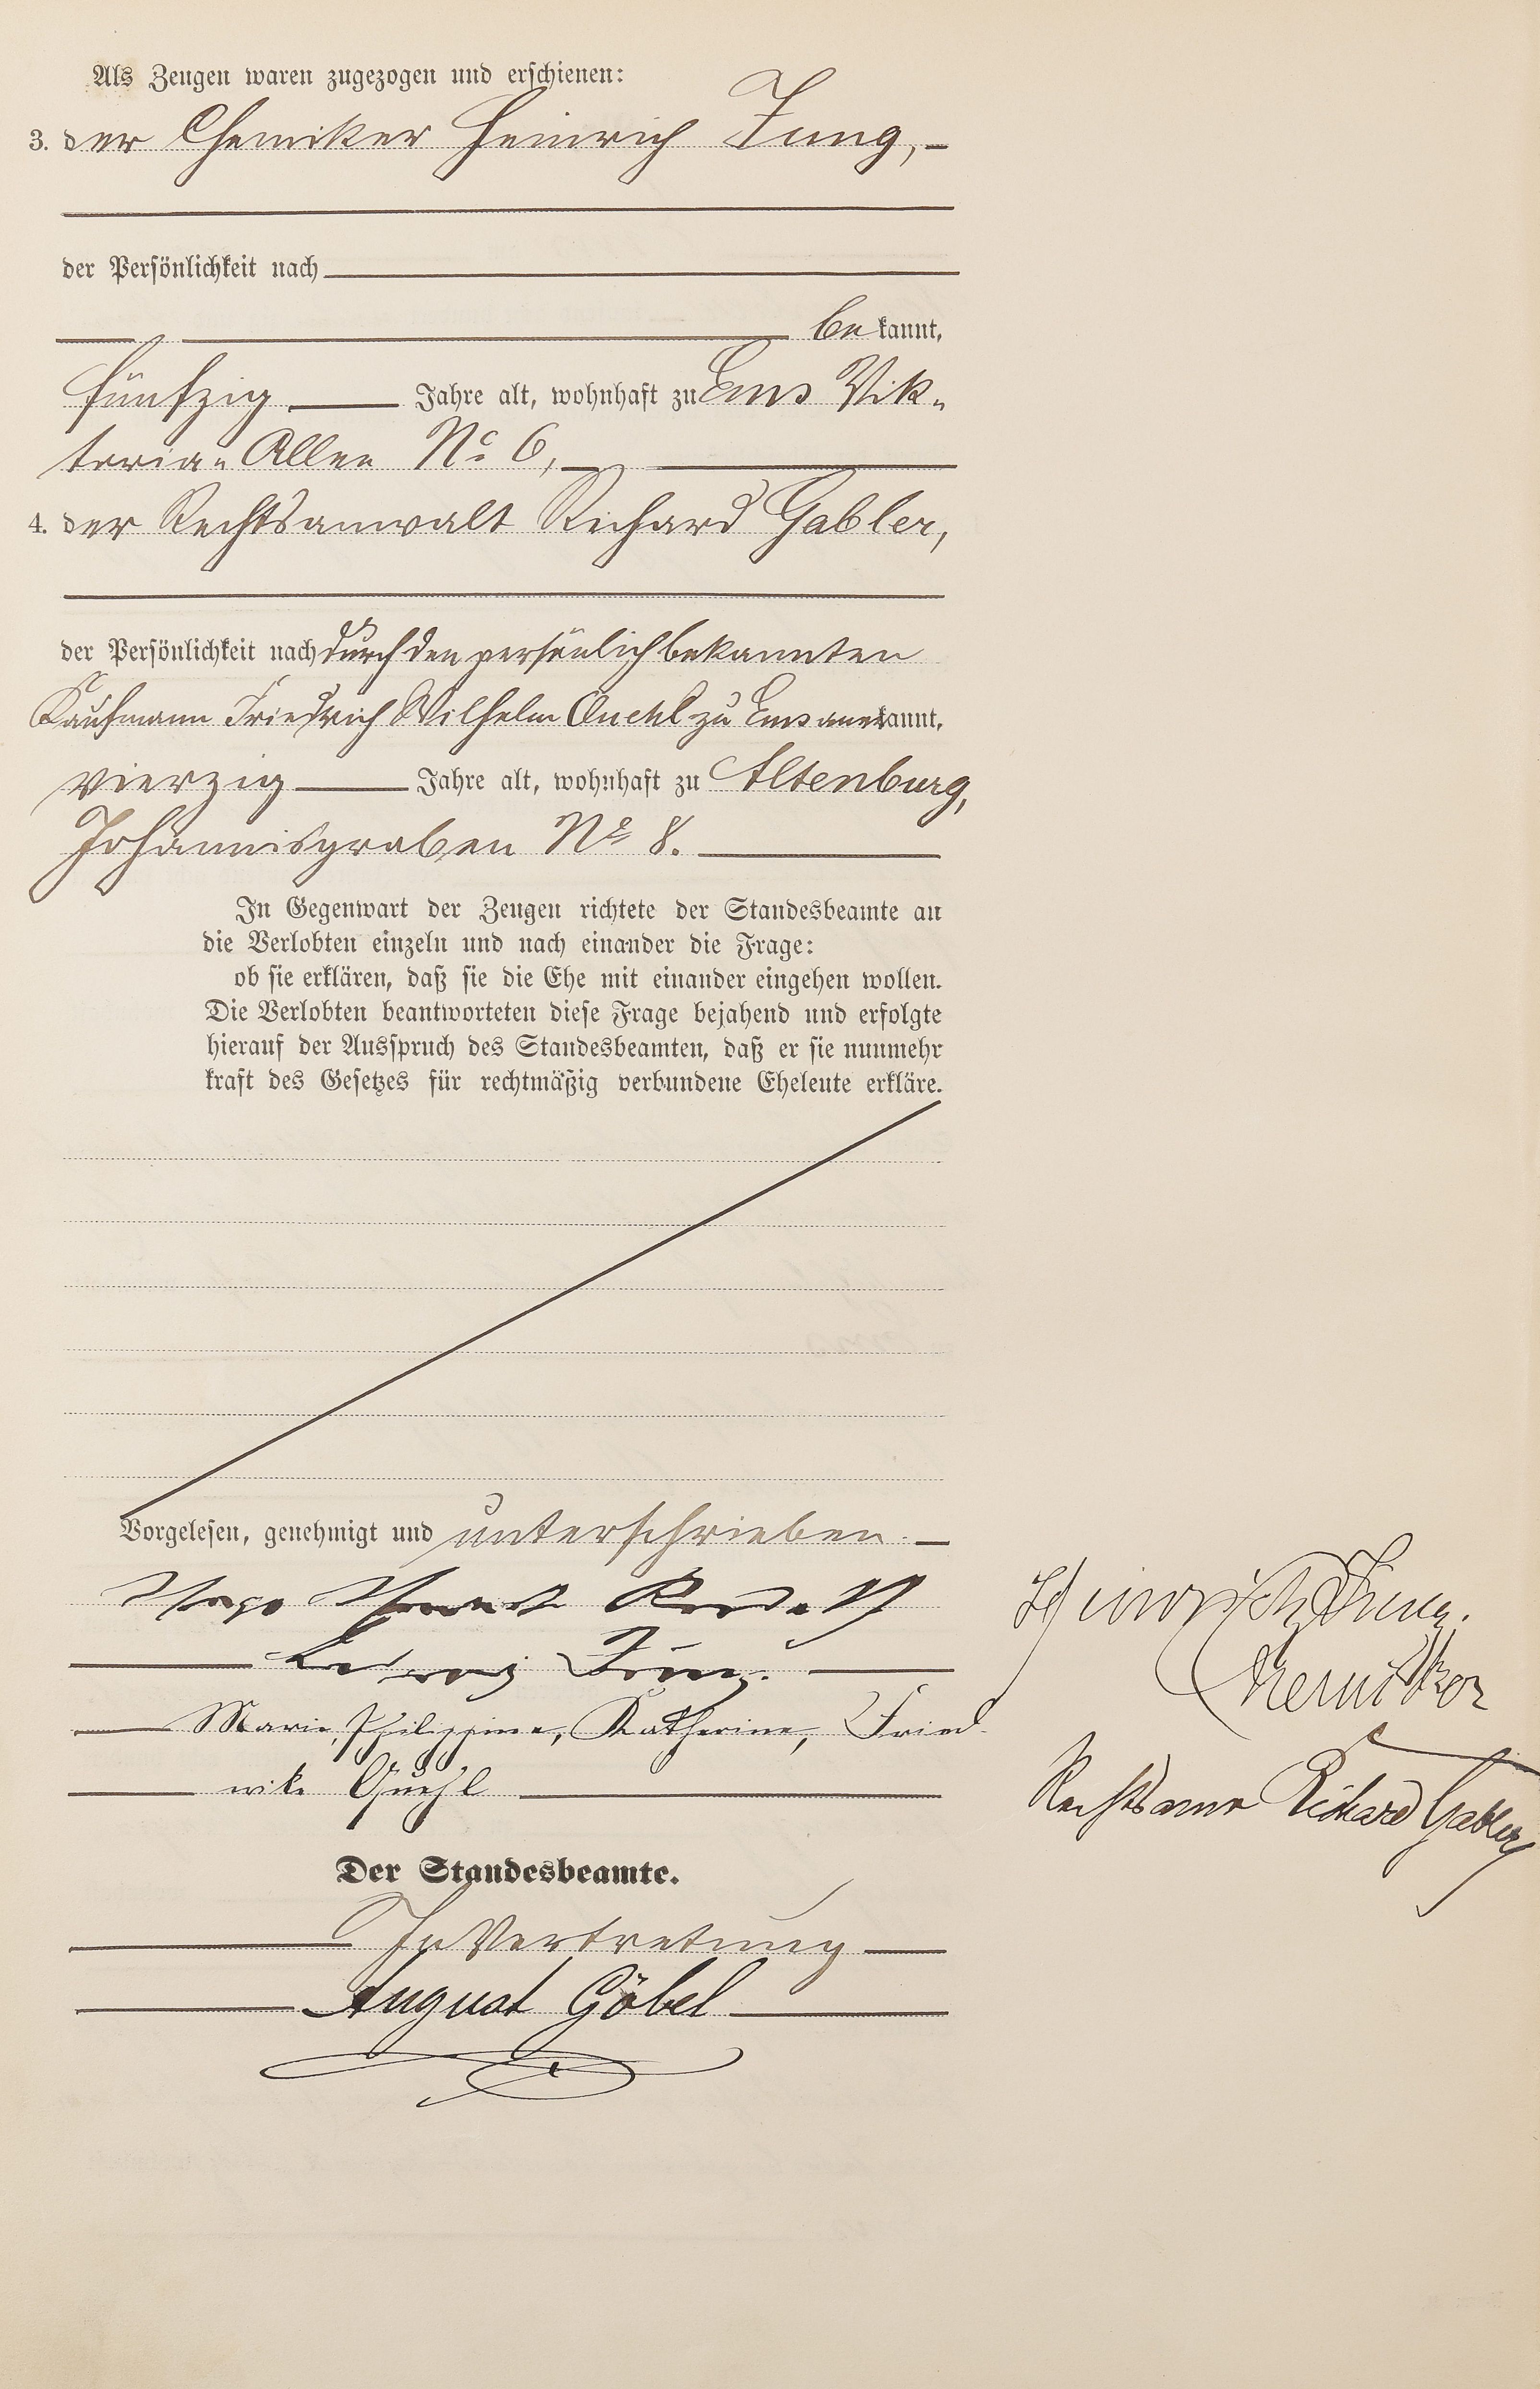 Als Zeugen waren zugezogen und erschienen:
3. der Chemiker Heinrich Jung, —
der Persönlichkeit nach
bekannt,
fünfzig Jahre alt, wohnhaft zu Ems Vik-
toria-Allee No 6,
4. der Rechtsanwalt Richard Gabler,
der Persönlichkeit nach durch den persönlich bekannten
Kaufmann Friedrich Wilhelm zu Ems anerkannt,
vierzig Jahre alt, wohnhaft zu Altenburg,
Johannisgraben No 8.
In Gegenwart der Zeugen richtete der Standesbeamte an
die Verlobten einzeln und nach einander die Frage:
ob sie erklären, daß sie die Ehe mit einander eingehen wollen.
Die Verlobten beantworteten diese Frage bejahend und erfolgte
hierauf der Ausspruch des Standesbeamten, daß er sie nunmehr
kraft des Gesetzes für rechtmäßig verbundene Eheleute erkläre.
Vorgelesen, genehmigt und unterschrieben. —
Hugo
Ludwig Jung.
Marie, Philippine, Katharine, Fried-
rike Quehl
Heinrich Jung.
Chemiker
Richard Gabler
Der Standesbeamte.
In Vertretung
August Göbel